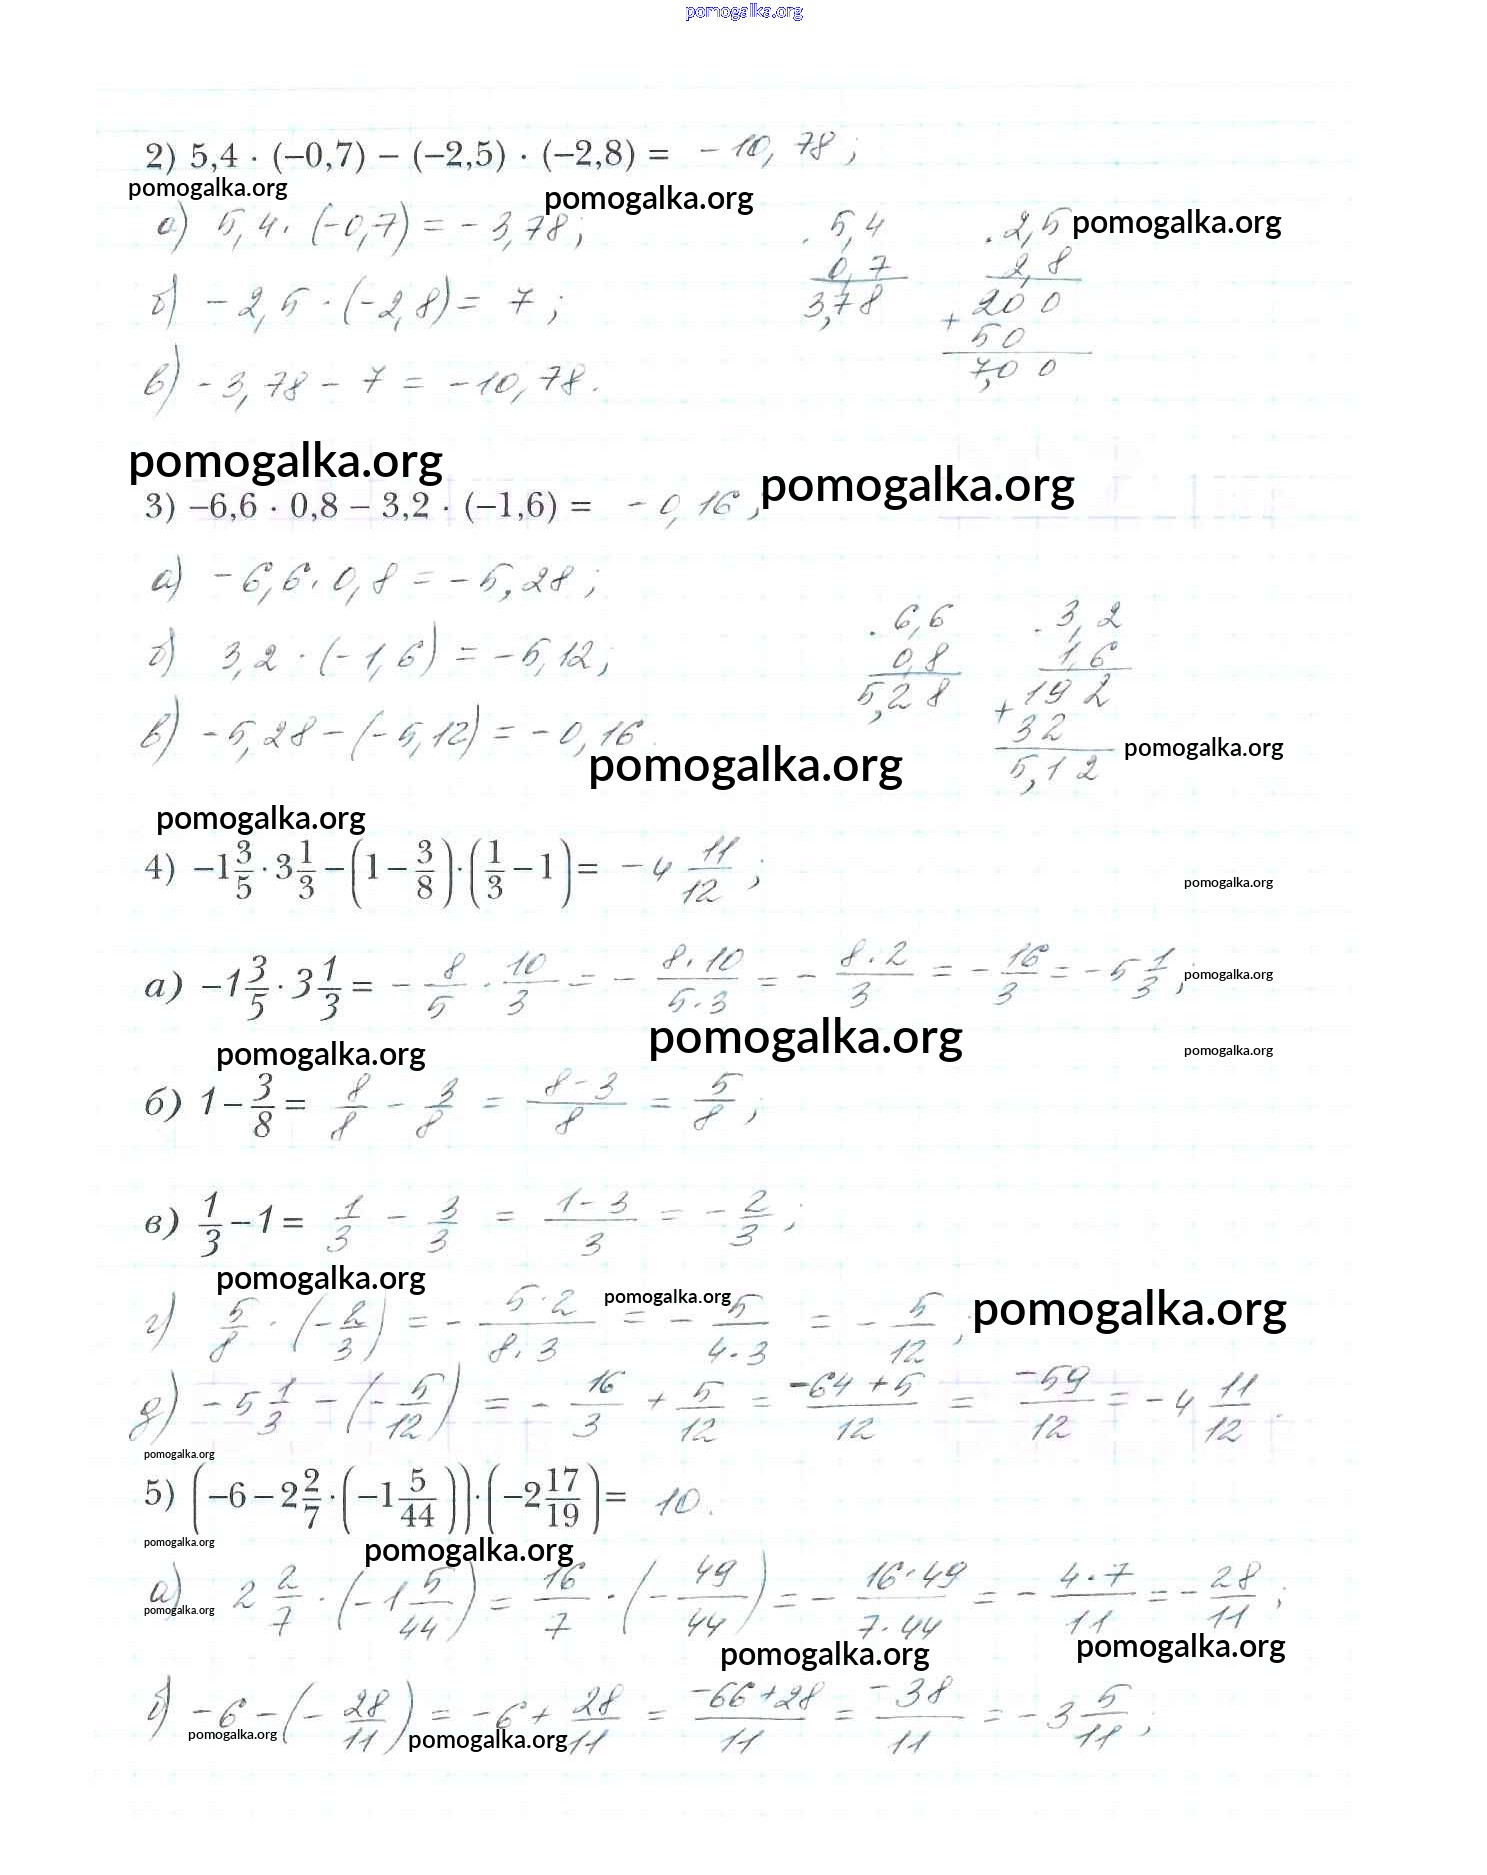 pomogalka.org
2) 5,4 · (–0,7) – (–2,5) · (–2,8) = – 10,78 ;
pomogalka.org pomogalka.org pomogalka.org
а) 5,4 · (–0,7) = – 3,78 ;
5,4
0,7
3,78
2,5
2,8
200
+ 50
7,00
б) – 2,5 · (–2,8) = 7 ;
в) – 3,78 – 7 = – 10,78 .
pomogalka.org pomogalka.org
3) –6,6 · 0,8 – 3,2 · (–1,6) = – 0,16 ;
а) – 6,6 · 0,8 = – 5,28 ;
б) 3,2 · (– 1,6) = – 5,12 ;
в) – 5,28 – (– 5,12) = – 0,16 .
6,6
0,8
5,28
3,2
1,6
192
+ 32
5,12
pomogalka.org pomogalka.org
pomogalka.org
4) –1 3/5 · 3 1/3 – (1 – 3/8) · (1/3 – 1) = – 4 11/12 ;
pomogalka.org
а) –1 3/5 · 3 1/3 = – 8/5 · 10/3 = – 8·10/5·3 = – 8·2/3 = – 16/3 = – 5 1/3 ;
pomogalka.org
pomogalka.org pomogalka.org pomogalka.org
б) 1 – 3/8 = 8/8 – 3/8 = 8–3/8 = 5/8 ;
в) 1/3 – 1 = 1/3 – 3/3 = 1–3/3 = – 2/3 ;
pomogalka.org pomogalka.org pomogalka.org
г) 5/8 · (– 2/3) = – 5·2/8·3 = – 5/4·3 = – 5/12 ;
д) – 5 1/3 – (– 5/12) = – 16/3 + 5/12 = –64+5/12 = –59/12 = – 4 11/12 .
pomogalka.org
5) (–6 – 2 2/7 · (–1 5/44)) · (–2 17/19) = 10 .
pomogalka.org pomogalka.org
а) 2 2/7 · (–1 5/44) = 16/7 · (– 49/44) = – 16·49/7·44 = – 4·7/11 = – 28/11 ;
pomogalka.org
pomogalka.org pomogalka.org
б) – 6 – (– 28/11) = – 6 + 28/11 = –66+28/11 = –38/11 = – 3 5/11 ;
pomogalka.org pomogalka.org